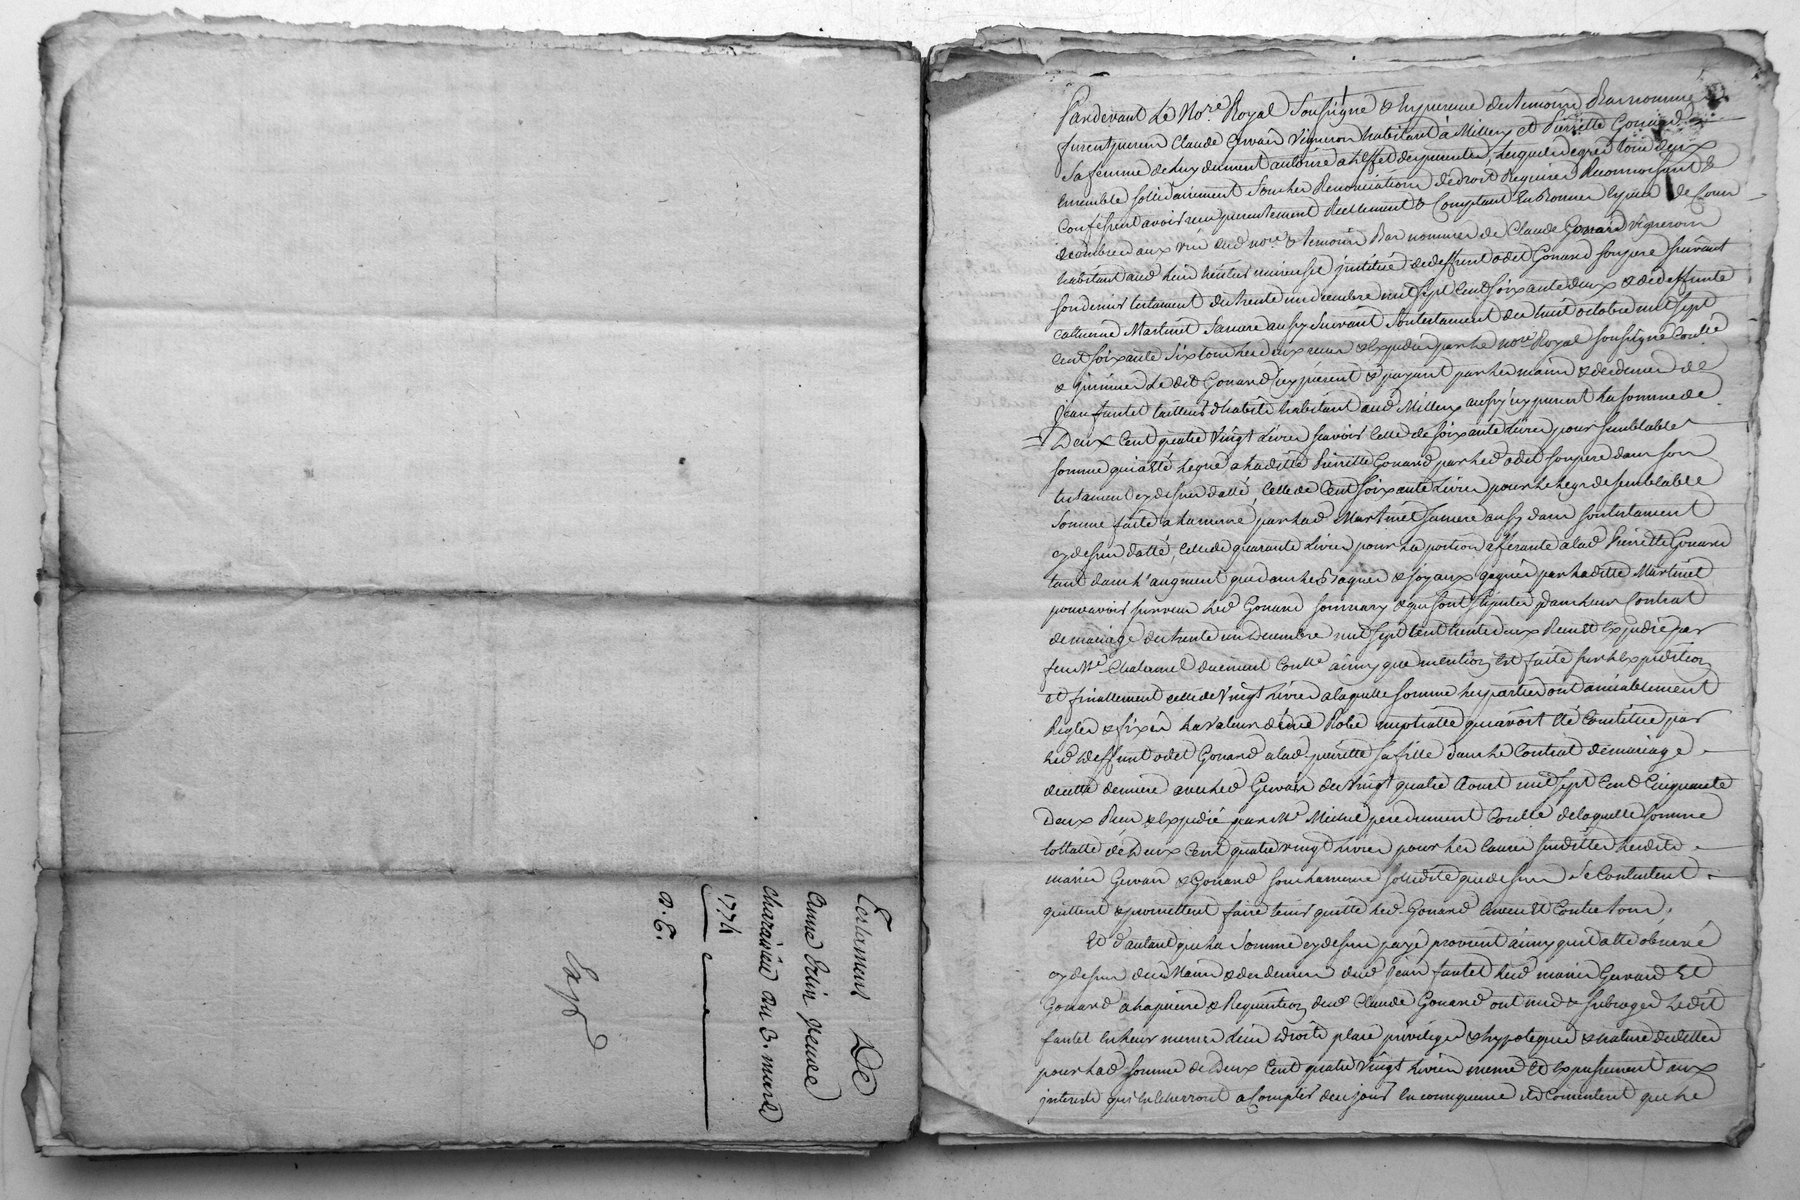 Testament De
anne Velin veuve
charavin du 3. mars
1774
a. C.
Exp
Pardevant Le No.re Royal Soussigné & En presence des temoins Bas nommés
furent presents Claude Gervais Vigneron habitant à Millery et Pierrette Gonard
Sa femme de luy duement autorisé a l'Effet des presentes, lesquels de gré tous deux
Ensemble solidairement sous les Renonciations de droit Requises Reconnoissent &
Confessent avoir reçu presentement Reellement & Comptant En Bonnes Especes de Cours
denombrées aux vüe dud no.re & temoins Bas nommés de Claude Gonard vigneron
habitant aud lieu heritier universel institué de deffunt odet Gonard son pere suivant
son dernier testament du trente un decembre mil sept Cent soixante deux & de deffunte
Catherine Martinet Sa mere aussy Suivant Son testament du huit octobre mil sept
Cent soixante Six tous les deux reçus & Expediés par le no.re Royal soussigné Con.lé
& insinués Le dit Gonard icy present & payant par les mains & des deniers de
Jean fantet tailleur d'habits habitant aud Millery aussy icy present La somme de
Deux Cent quatre Vingt Livres scavoir Celle de soixante Livres pour semblable
somme qui a été leguée a Laditte Pierrette Gonard par led odet son pere dans son
testament cy dessus datté, Celle de Cent soixante Livres pour le legs de semblable
Somme faite a la meme par lad Martinet sa mere aussy dans son testament
cy dessus datté, Celle de quarante Livres pour La portion afferante a lad Pierrette Gonard
tant dans L'augment que dans les Bagues & joyaux gagnés par laditte Martinet
pour avoir survecu led Gonard son mary & qui sont stipulés dans leur Contrat
de mariage du trente un Decembre mil sept Cent trente deux Reçu & Expedié par
feu M.e Chalamel duement Con.lle ainsy que mention Est faite sur l'Expedition
et finallement celle de Vingt Livres a laquelle somme les parties ont amiablement
Reglé & fixé La Valeur d'une Robe nuptialle qui avoit été Constituée par
led deffunt odet Gonard a lad pierrette sa fille dans Le Contrat de mariage
de cette derniere avec led Gervais du Vingt quatre Aoust mil sept Cent Cinquante
Deux Reçu & Expedié par M.e Michel pere duement Con.llé de laquelle somme
tottalle de Deux Cent quatre vingt Livres pour les causes susdittes lesdits
mariés Gervais & Gonard sous la meme solidité que dessus se Contentent
quittent & promettent faire tenir quitte led Gonard Envers & Contre tous,
Et d'autant que La Somme cy dessus payé provient ainsy qu'il a été observé
cy dessus des mains & des deniers dud Jean fantet lesd mariés Gervais Et
Gonard a la priere & Requisition dud Claude Gonard ont mis & subrogé Ledit
fantet En leurs memes Lieu droits place privileges & hypoteques & nature de dettes
pour Lad somme de Deux Cent quatre Vingt Livres meme Et Expressement aux
interets qui En Echerront a Compter de ce jour En consequence ils Consentent que le